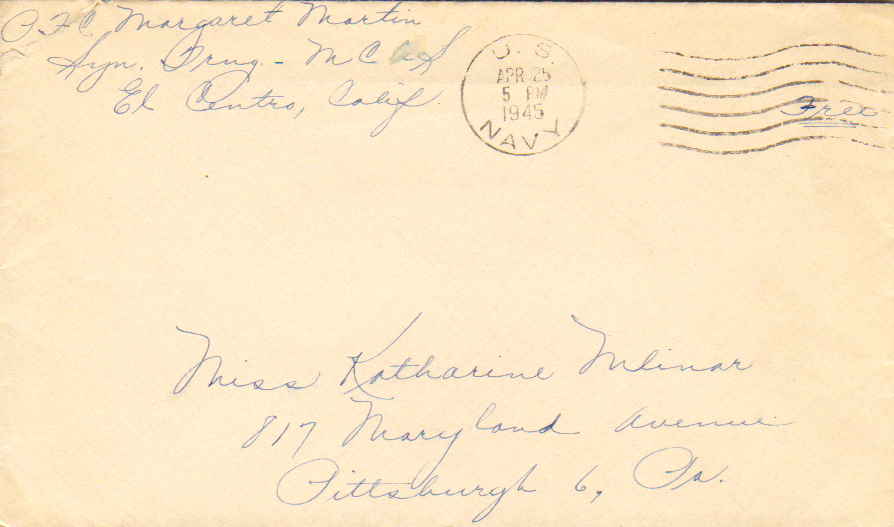 PFC Margaret Martin
Syn. Trng. - MCAS
El Centro, Calif.
U. S.
APR 25
5 PM
1945
NAVY
Free
Miss Katharine Mlinar
817 Maryland Avenue
Pittsburgh 6, Pa.